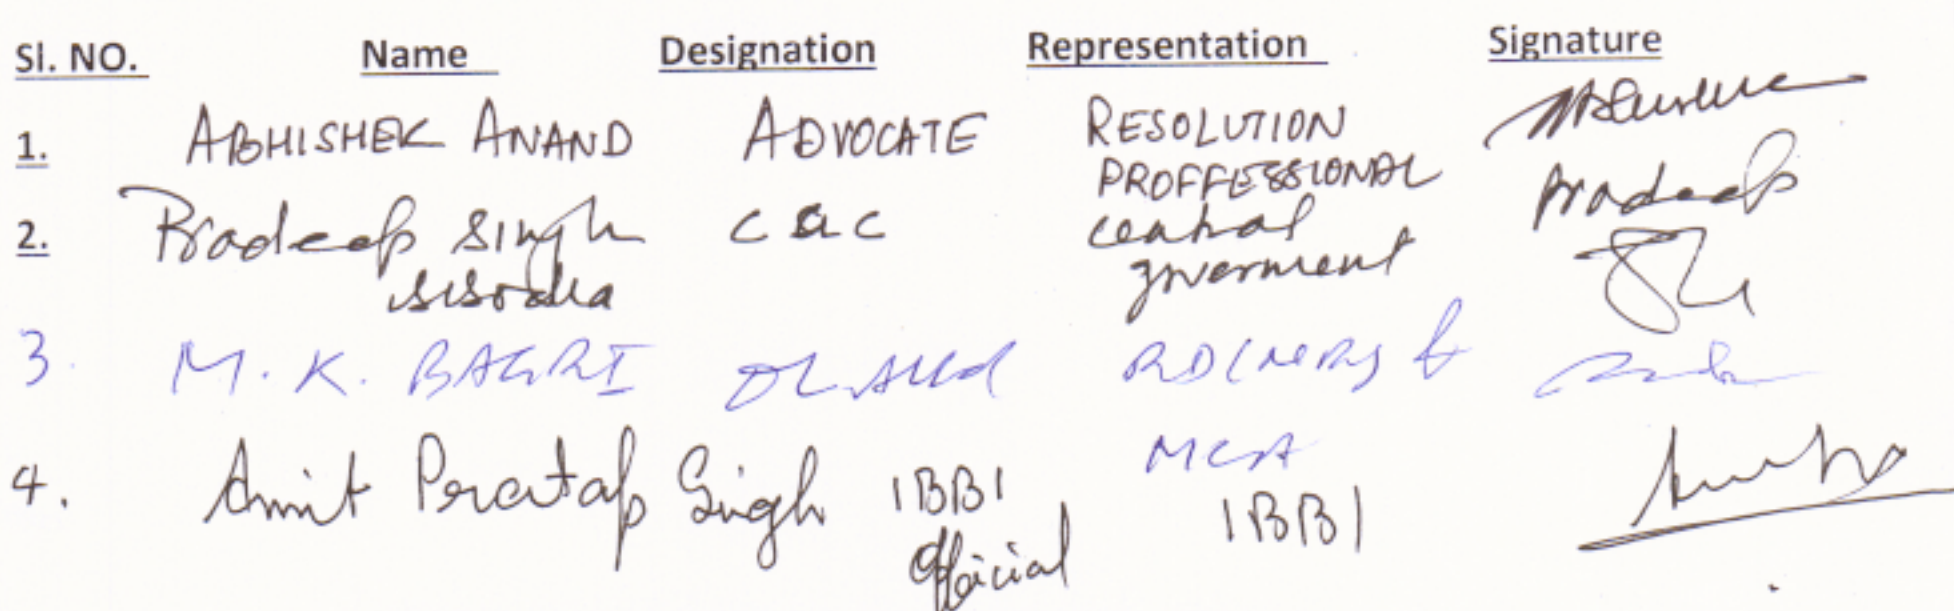 Sl. NO. Name Designation Representation Signature
1. ABHISHEK ANAND ADVOCATE RESOLUTION
PROFFESSIONAL
2. Pradeep Singh CGC central Pradeep
Sisodia goverment
3. M. K. BAGRI OL RD(NR) &
MCA
4. Amit Pratap Singh IBBI IBBI
official